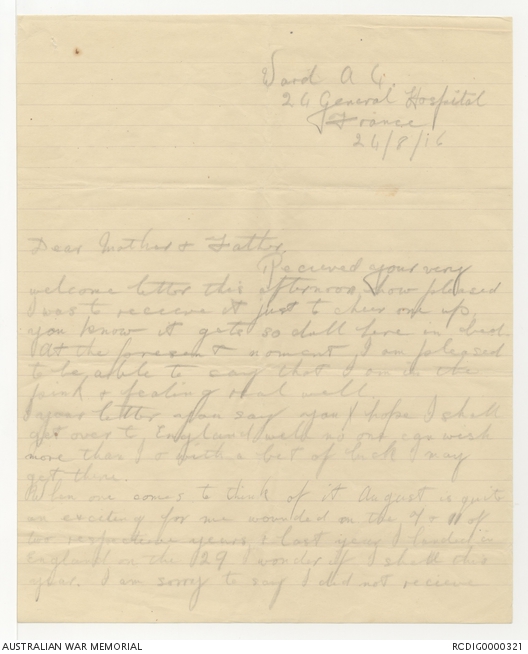 Ward A 4.
24 General Hospital
France
24/8/16
Dear Mother & Father,
Recieved your very
welcome letter this afternoon, how pleased
I was to receive it just to cheer one up,
you know it gets so dull here in bed.
At the present moment, I am pleased
to be able to say that I am in the
pink & feeling real well.
I your letter you say you hope I shall
get over to England well no one can wish
more than I & with a bit of luck I may
get there.
When one comes to think of it August is quite
an exciting for me wounded on the 7 & 11 of
two respective years & last year I landed in
England on the 29 I wonder if I shall this
year. I am sorry to say I did not recieve
AUSTRALIAN WAR MEMORIAL
RCDIG0000321